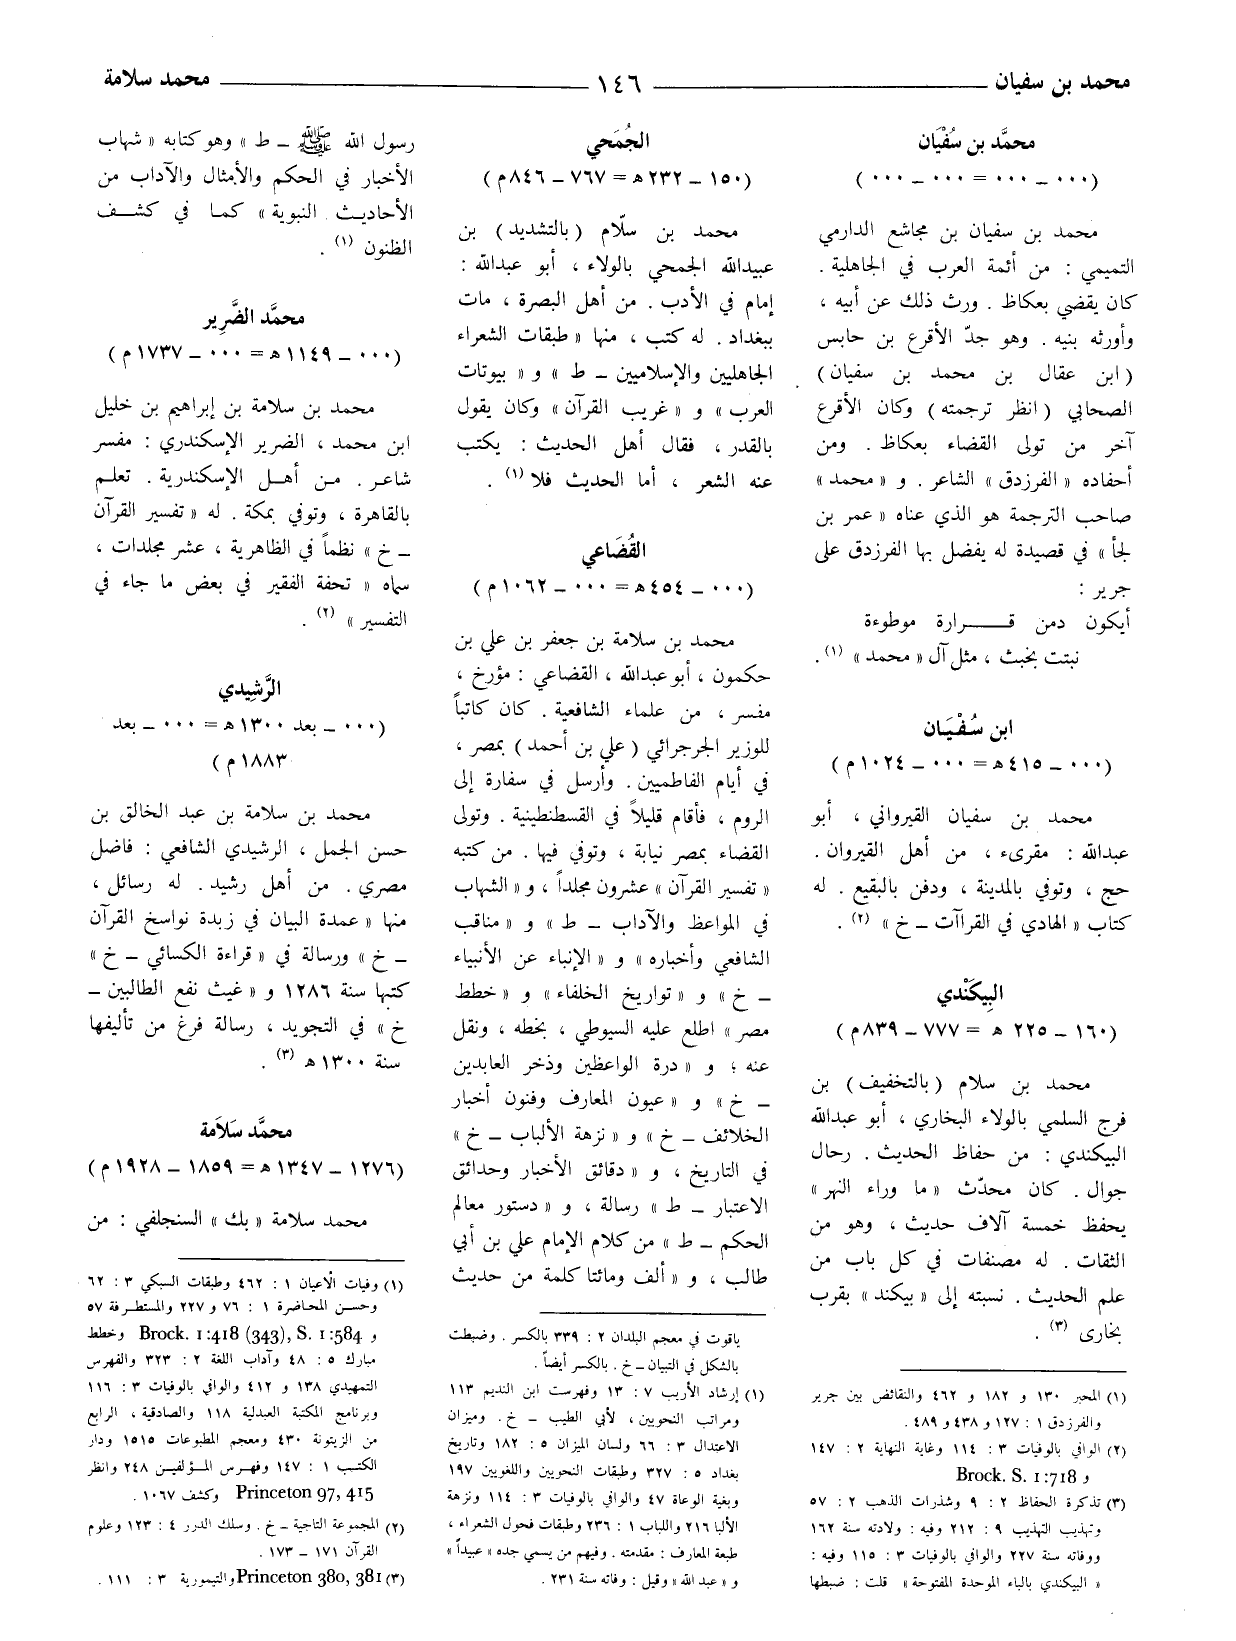 محمد بن سفيان ١٤٦ محمد سلامة
محمَّد بن سُفْيَان
(٠٠٠ ــ ٠٠٠ = ٠٠٠ ــ ٠٠٠)
محمد بن سفيان بن مجاشع الدارمي
التميمي : من أئمة العرب في الجاهلية .
كان يقضي بعكاظ . ورث ذلك عن أبيه ،
وأورثه بنيه . وهو جدّ الأقرع بن حابس
(ابن عقال بن محمد بن سفيان)
الصحابي (انظر ترجمته) وكان الأقرع
آخر من تولى القضاء بعكاظ . ومن
أحفاده « الفرزدق » الشاعر . و « محمد »
صاحب الترجمة هو الذي عناه « عمر بن
لجأ » في قصيدة له يفضل بها الفرزدق على
جرير :
أيكون دمن قــــرارة موطوءة
نبتت بخبث ، مثل آل « محمد » (١).
ابن سُفْيَان
(٠٠٠ ــ ٤١٥ ه = ٠٠٠ ــ ١٠٢٤ م)
محمد بن سفيان القيرواني ، أبو
عبدالله : مقرىء ، من أهل القيروان .
حج ، وتوفي بالمدينة ، ودفن بالبقيع . له
كتاب « الهادي في القراآت ــ خ » (٢) .
البِيكَنْدي
(١٦٠ ــ ٢٢٥ ه = ٧٧٧ ــ ٨٣٩ م)
محمد بن سلام (بالتخفيف) بن
فرج السلمي بالولاء البخاري ، أبو عبدالله
البيكندي : من حفاظ الحديث . رحال
جوال . كان محدّث « ما وراء النهر »
يحفظ خمسة آلاف حديث ، وهو من
الثقات . له مصنفات في كل باب من
علم الحديث . نسبته إلى « بيكند » بقرب
بخارى (٣) .
(١) المحبر ١٣٠ و ١٨٢ و ٤٦٢ والنقائض بين جرير
والفرزدق ١ : ١٢٧ و ٤٣٨ و ٤٨٩ .
(٢) الوافي بالوفيات ٣ : ١١٤ وغاية النهاية ٢ : ١٤٧
و Brock. S. 1:718
(٣) تذكرة الحفاظ ٢ : ٩ وشذرات الذهب ٢ : ٥٧
وتهذيب التهذيب ٩ : ٢١٢ وفيه : ولادته سنة ١٦٢
ووفاته سنة ٢٢٧ والوافي بالوفيات ٣ : ١١٥ وفيه :
« البيكندي بالباء الموحدة المفتوحة » قلت : ضبطها
الجُمَحي
(١٥٠ ــ ٢٣٢ ه = ٧٦٧ ــ ٨٤٦ م)
محمد بن سلّام (بالتشديد) بن
عبيدالله الجمحي بالولاء ، أبو عبدالله :
إمام في الأدب . من أهل البصرة ، مات
ببغداد . له كتب ، منها « طبقات الشعراء
الجاهليين والإسلاميين ــ ط » و « بيوتات
العرب » و « غريب القرآن » وكان يقول
بالقدر ، فقال أهل الحديث : يكتب
عنه الشعر ، أما الحديث فلا (١) .
القُضَاعي
(٠٠٠ ــ ٤٥٤ ه = ٠٠٠ ــ ١٠٦٢ م)
محمد بن سلامة بن جعفر بن علي بن
حكمون ، أبو عبدالله ، القضاعي : مؤرخ ،
مفسر ، من علماء الشافعية . كان كاتباً
للوزير الجرجرائي (علي بن أحمد) بمصر ،
في أيام الفاطميين . وأرسل في سفارة إلى
الروم ، فأقام قليلاً في القسطنطينية . وتولى
القضاء بمصر نيابة ، وتوفي فيها . من كتبه
« تفسير القرآن » عشرون مجلداً ، و « الشهاب
في المواعظ والآداب ــ ط » و « مناقب
الشافعي وأخباره » و « الإنباء عن الأنبياء
ــ خ » و « تواريخ الخلفاء » و « خطط
مصر » اطلع عليه السيوطي ، بخطه ، ونقل
عنه ؛ و « درة الواعظين وذخر العابدين
ــ خ » و « عيون المعارف وفنون أخبار
الخلائف ــ خ » و « نزهة الألباب ــ خ »
في التاريخ ، و « دقائق الأخبار وحدائق
الاعتبار ــ ط » رسالة ، و « دستور معالم
الحكم ــ ط » من كلام الإمام علي بن أبي
طالب ، و « ألف ومائتا كلمة من حديث
ياقوت في معجم البلدان ٢ : ٣٣٩ بالكسر . وضبطت
بالشكل في التبيان ــ خ . بالكسر أيضاً .
(١) إرشاد الأريب ٧ : ١٣ وفهرست ابن النديم ١١٣
ومراتب النحويين ، لأبي الطيب ــ خ . وميزان
الاعتدال ٣ : ٦٦ ولسان الميزان ٥ : ١٨٢ وتاريخ
بغداد ٥ : ٣٢٧ وطبقات النحويين واللغويين ١٩٧
وبغية الوعاة ٤٧ والوافي بالوفيات ٣ : ١١٤ ونزهة
الألبا ٢١٦ واللباب ١ : ٢٣٦ وطبقات فحول الشعراء ،
طبعة المعارف : مقدمته . وفيهم من يسمي جده « عبيداً »
و « عبد الله » وقيل : وفاته سنة ٢٣١ .
رسول الله ﷺ ــ ط » وهو كتابه « شهاب
الأخبار في الحكم والأمثال والآداب من
الأحاديث النبوية » كما في كشــف
الظنون (١) .
محمَّد الضَّرِير
(٠٠٠ ــ ١١٤٩ ه = ٠٠٠ ــ ١٧٣٧ م)
محمد بن سلامة بن إبراهيم بن خليل
ابن محمد ، الضرير الإسكندري : مفسر
شاعر . مـن أهـل الإسكندرية . تعلم
بالقاهرة ، وتوفي بمكة . له « تفسير القرآن
ــ خ » نظماً في الظاهرية ، عشر مجلدات ،
سماه « تحفة الفقير في بعض ما جاء في
التفسير » (٢) .
الرَّشِيدي
(٠٠٠ ــ بعد ١٣٠٠ ه = ٠٠٠ ــ بعد
١٨٨٣ م)
محمد بن سلامة بن عبد الخالق بن
حسن الجمل ، الرشيدي الشافعي : فاضل
مصري . من أهل رشيد . له رسائل ،
منها « عمدة البيان في زبدة نواسخ القرآن
ــ خ » ورسالة في « قراءة الكسائي ــ خ »
كتبها سنة ١٢٨٦ و « غيث نفع الطالبين ــ
خ » في التجويد ، رسالة فرغ من تأليفها
سنة ١٣٠٠ ه (٣) .
محمَّد سَلَامة
(١٢٧٦ ــ ١٣٤٧ ه = ١٨٥٩ ــ ١٩٢٨ م)
محمد سلامة « بك » السنجلفي : من
(١) وفيات الأعيان ١ : ٤٦٢ وطبقات السبكي ٣ : ٦٢
وحسن المحاضرة ١ : ٧٦ و ٢٢٧ والمستطرفة ٥٧
و Brock. 1:418 (343), S. 1:584 وخطط
مبارك ٥ : ٤٨ وآداب اللغة ٢ : ٣٢٣ والفهرس
التمهيدي ١٣٨ و ٤١٢ والوافي بالوفيات ٣ : ١١٦
وبرنامج المكتبة العبدلية ١١٨ والصادقية ، الرابع
من الزيتونة ٤٣٠ ومعجم المطبوعات ١٥١٥ ودار
الكتب ١ : ١٤٧ وفهرس المؤلفين ٢٤٨ وانظر
Princeton 97, 415 وكشف ١٠٦٧ .
(٢) المجموعة التاجية ــ خ . وسلك الدرر ٤ : ١٢٣ وعلوم
القرآن ١٧١ ــ ١٧٣ .
(٣) Princeton 380, 381 والتيمورية ٣ : ١١١ .